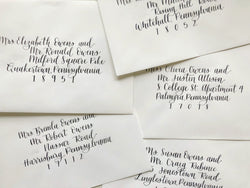 Rising Mill Road
Whitehall Pennsylvania
18052
Mrs Elizabeth Owens and
Mr Ronald Owens
Milford Square Pike
Quakertown, Pennsylvania
18951
Mrs Olivia Owens and
Mr Justin Allison
S College St. Apartment 9
Palmyra Pennsylvania
17078
Mrs Brenda Owens and
Mr Robert Owens
Road
Harrisburg Pennsylvania
17112
Ms Susan Owens and
Mr Craig
Jonestown Road
Pennsylvania